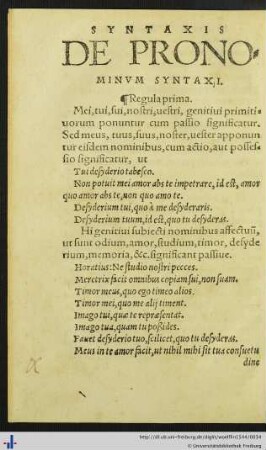 SYNTAXIS
DE PRONO-
MINVM SYNTAXI.
¶Regula prima.
Mei, tui, sui, nostri, uestri, genitiui primiti
uorum ponuntur cum passio significatur.
Sed meus, tuus, suus, noster, uester apponun
tur eisdem nominibus, cum actio, aut posses-
sio significatur, ut
Tui desyderio tabesco.
Non potuit mei amor abs te impetrare, id est, amor
quo amor abs te, non quo amo te.
Desyderium tui, quo à me desyderaris.
Desyderium tuum, id est, quo tu desyderas.
Hi genitiui subiecti nominibus affectuũ,
ut sunt odium, amor, studium, timor, desyde
rium, memoria, &c. significant passiue.
Horatius: Ne studio nostri pecces.
Meretrix facit omnibus copiam sui, non suam.
Timor meus, quo ego timeo alios.
Timor mei, quo me alij timent.
Imago tui, quæ te repræsentat.
Imago tua, quam tu possides.
Fauet desyderio tuo, scilicet, quo tu desyderas.
Meus in te amor facit, ut nihil mihi sit tua consuetu
dine
http://dl.ub.uni-freiburg.de/diglit/
© Universitätsbibliothek Freiburg